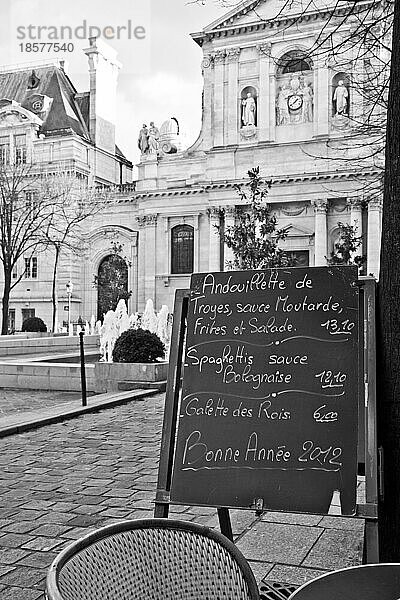 ibxrms08577540.jpg
Andouillette de
Troyes, sauce Moutarde,
Frites et Salade. 13,10
Spaghettis sauce
Bolognaise 12,10
Galette des Rois. 6,00
Bonne Année 2012